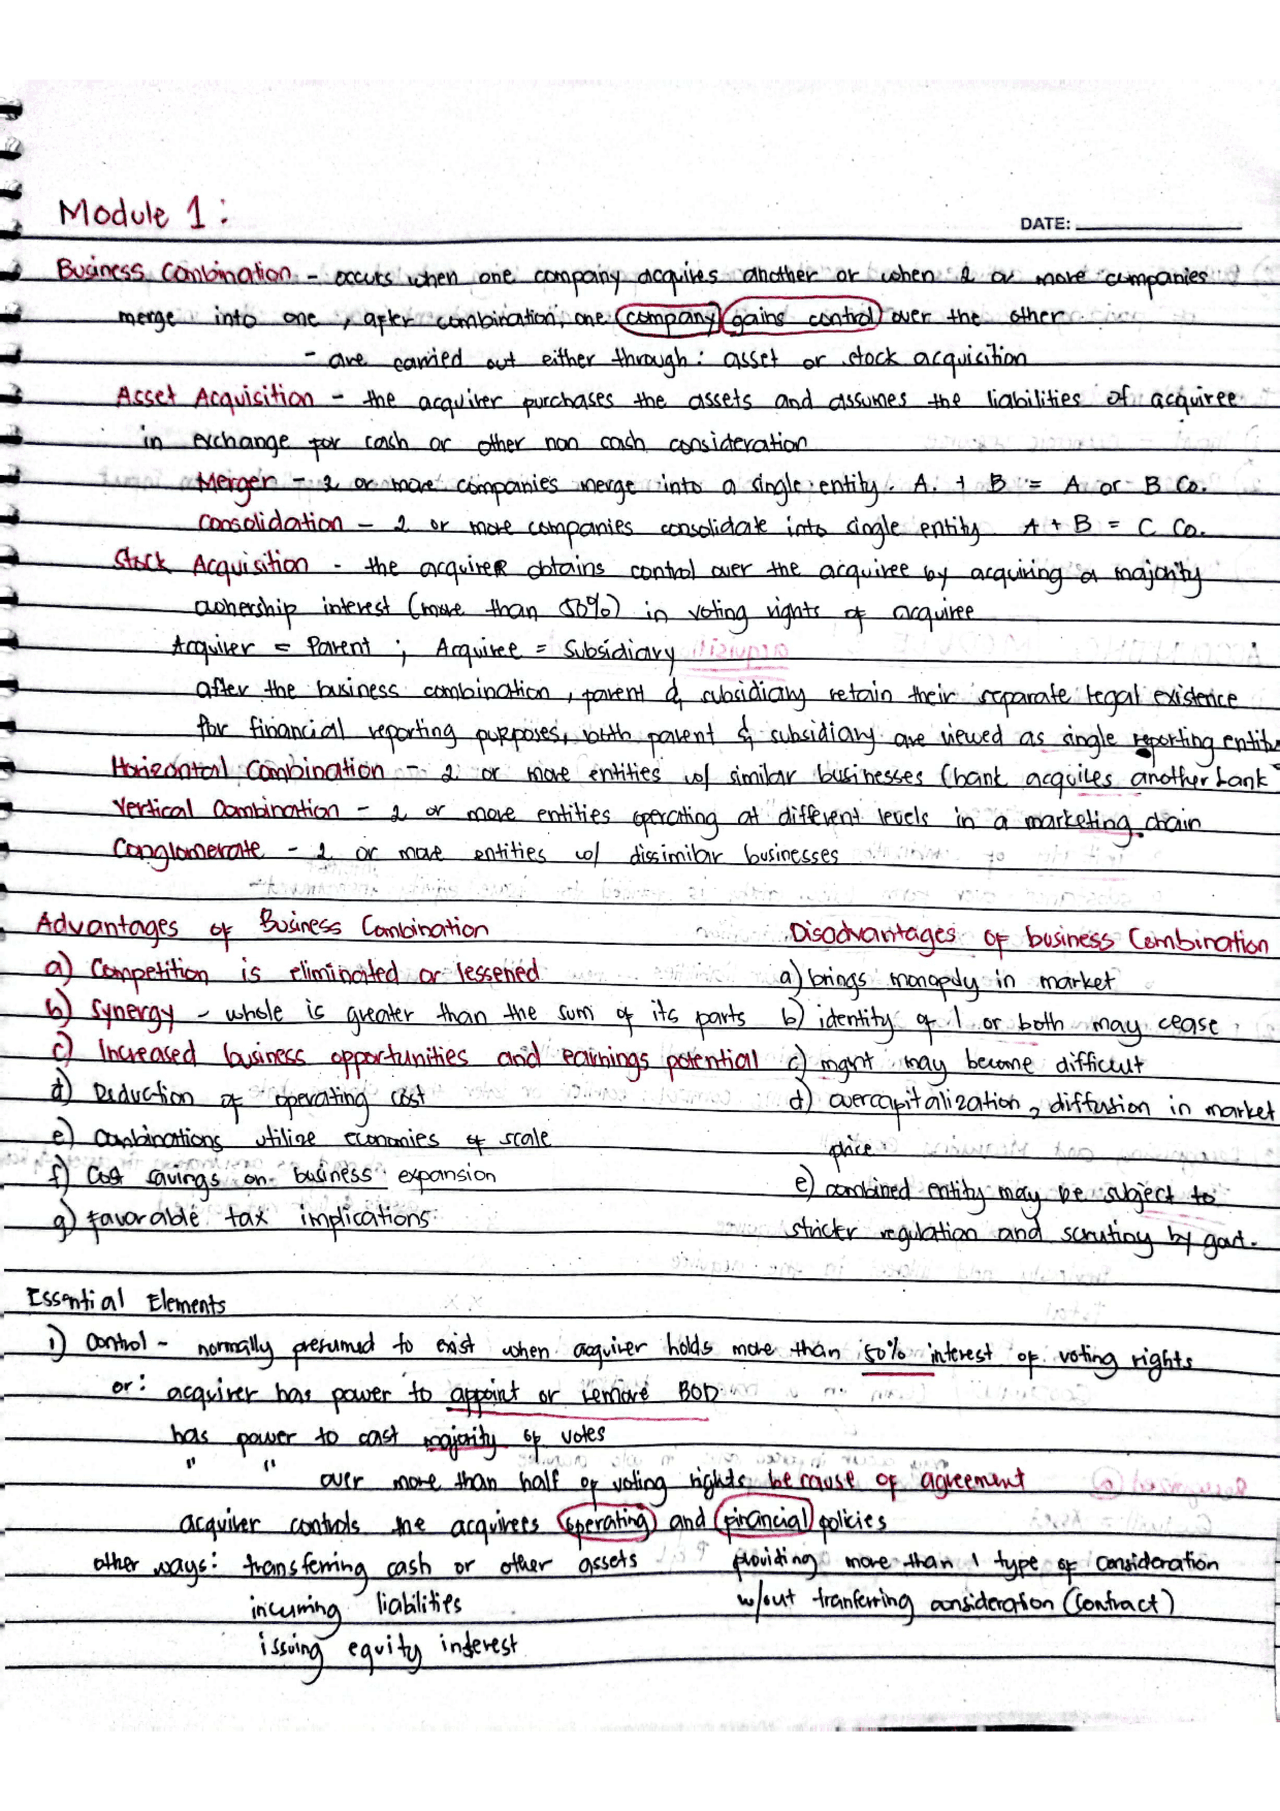 Module 1 :
DATE:
Business Combination - occurs when one company acquires another or when 2 or more companies
merge into one, after combination, one company gains control over the other
- are carried out either through: asset or stock acquisition
Asset Acquisition - the acquirer purchases the assets and assumes the liabilities of acquiree
in exchange for cash or other non cash consideration
Merger - 2 or more companies merge into a single entity. A + B = A or B Co.
Consolidation - 2 or more companies consolidate into single entity A + B = C Co.
Stock Acquisition - the acquireR obtains control over the acquiree by acquiring a majority
ownership interest (more than 50%) in voting rights of acquiree
Acquirer = Parent ; Acquiree = Subsidiary
after the business combination, parent & subsidiary retain their separate legal existence
for financial reporting purposes, both parent & subsidiary are viewed as single reporting entity
Horizontal Combination - 2 or more entities w/ similar businesses (bank acquires another bank
Vertical Combination - 2 or more entities operating at different levels in a marketing chain
Conglomerate - 2 or more entities w/ dissimilar businesses
Advantages of Business Combination
a) Competition is eliminated or lessened
b) Synergy - whole is greater than the sum of its parts
c) Increased business opportunities and earnings potential
d) Reduction of operating cost
e) Combinations utilize economies of scale
f) Cost savings on business expansion
g) favorable tax implications
Disadvantages of business Combination
a) brings monopoly in market
b) identity of 1 or both may cease
c) mgmt may become difficult
d) overcapitalization, diffusion in market
price
e) combined entity may be subject to
stricter regulation and scrutiny by govt.
Essential Elements
1) Control - normally presumed to exist when acquirer holds more than 50% interest of voting rights
or: acquirer has power to appoint or remove BOD
has power to cast majority of votes
" " over more than half of voting rights because of agreement
acquirer controls the acquirees operating and financial policies
other ways: transferring cash or other assets
incurring liabilities
issuing equity interest
providing more than 1 type of consideration
w/out tranferring consideration (contract)